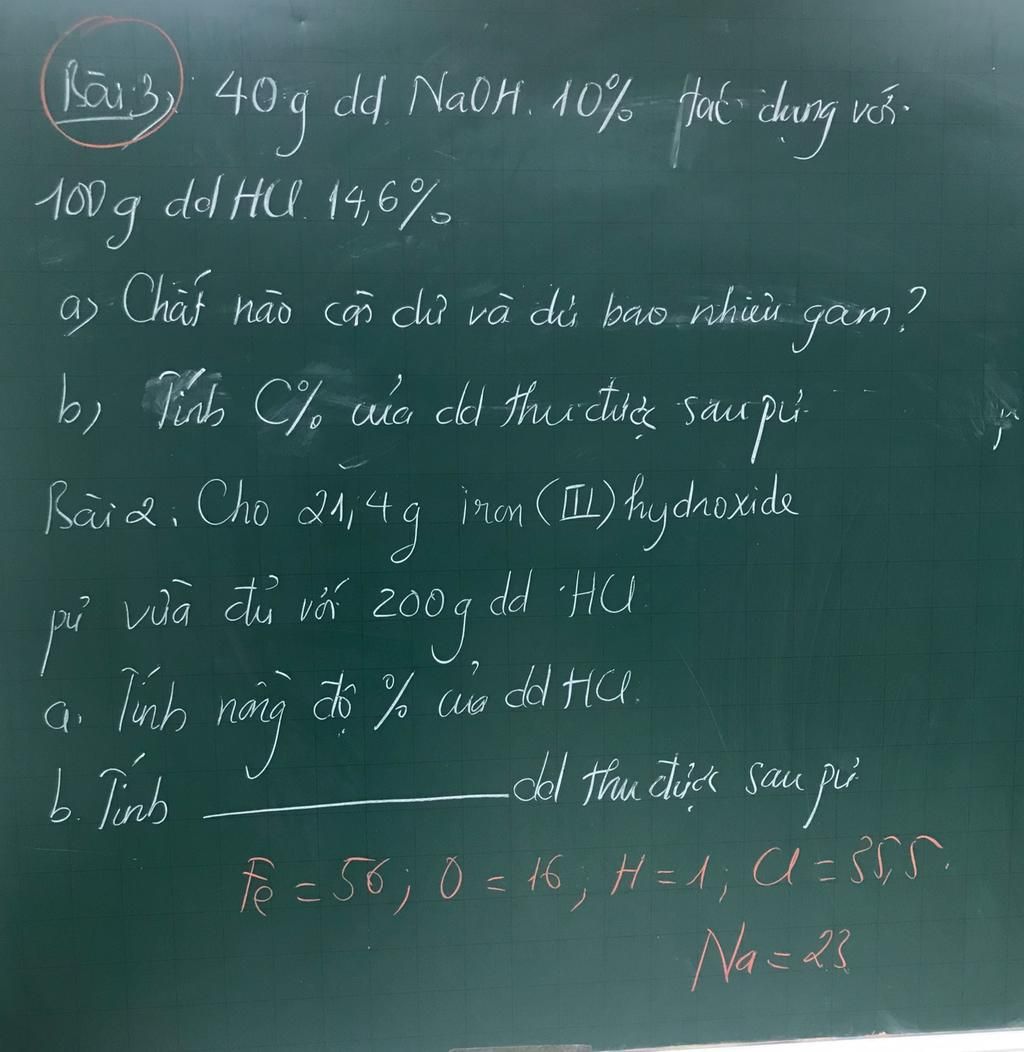 Bài 3, 40g dd NaOH. 10% tác dụng với
100g dd HCl 14,6%
a) Chất nào còn dư và dư bao nhiêu gam?
b) Tính C% của dd thu được sau pư
Bài 2. Cho 21,4g iron (III) hydroxide
pư vừa đủ với 200g dd HCl
a. Tính nồng độ % của dd HCl.
b. Tính ________ dd thu được sau pư
Fe = 56; O = 16; H = 1; Cl = 35,5.
Na = 23